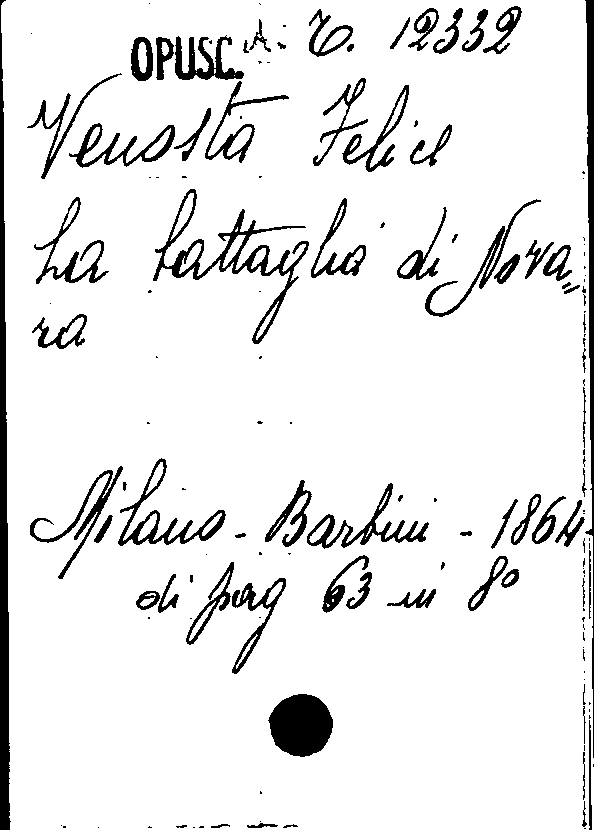 OPUSC. A. T. 12332
Venosta Felice
La battaglia di Nova=
ra
Milano - Barbini - 1864
di pag 63 in 8º